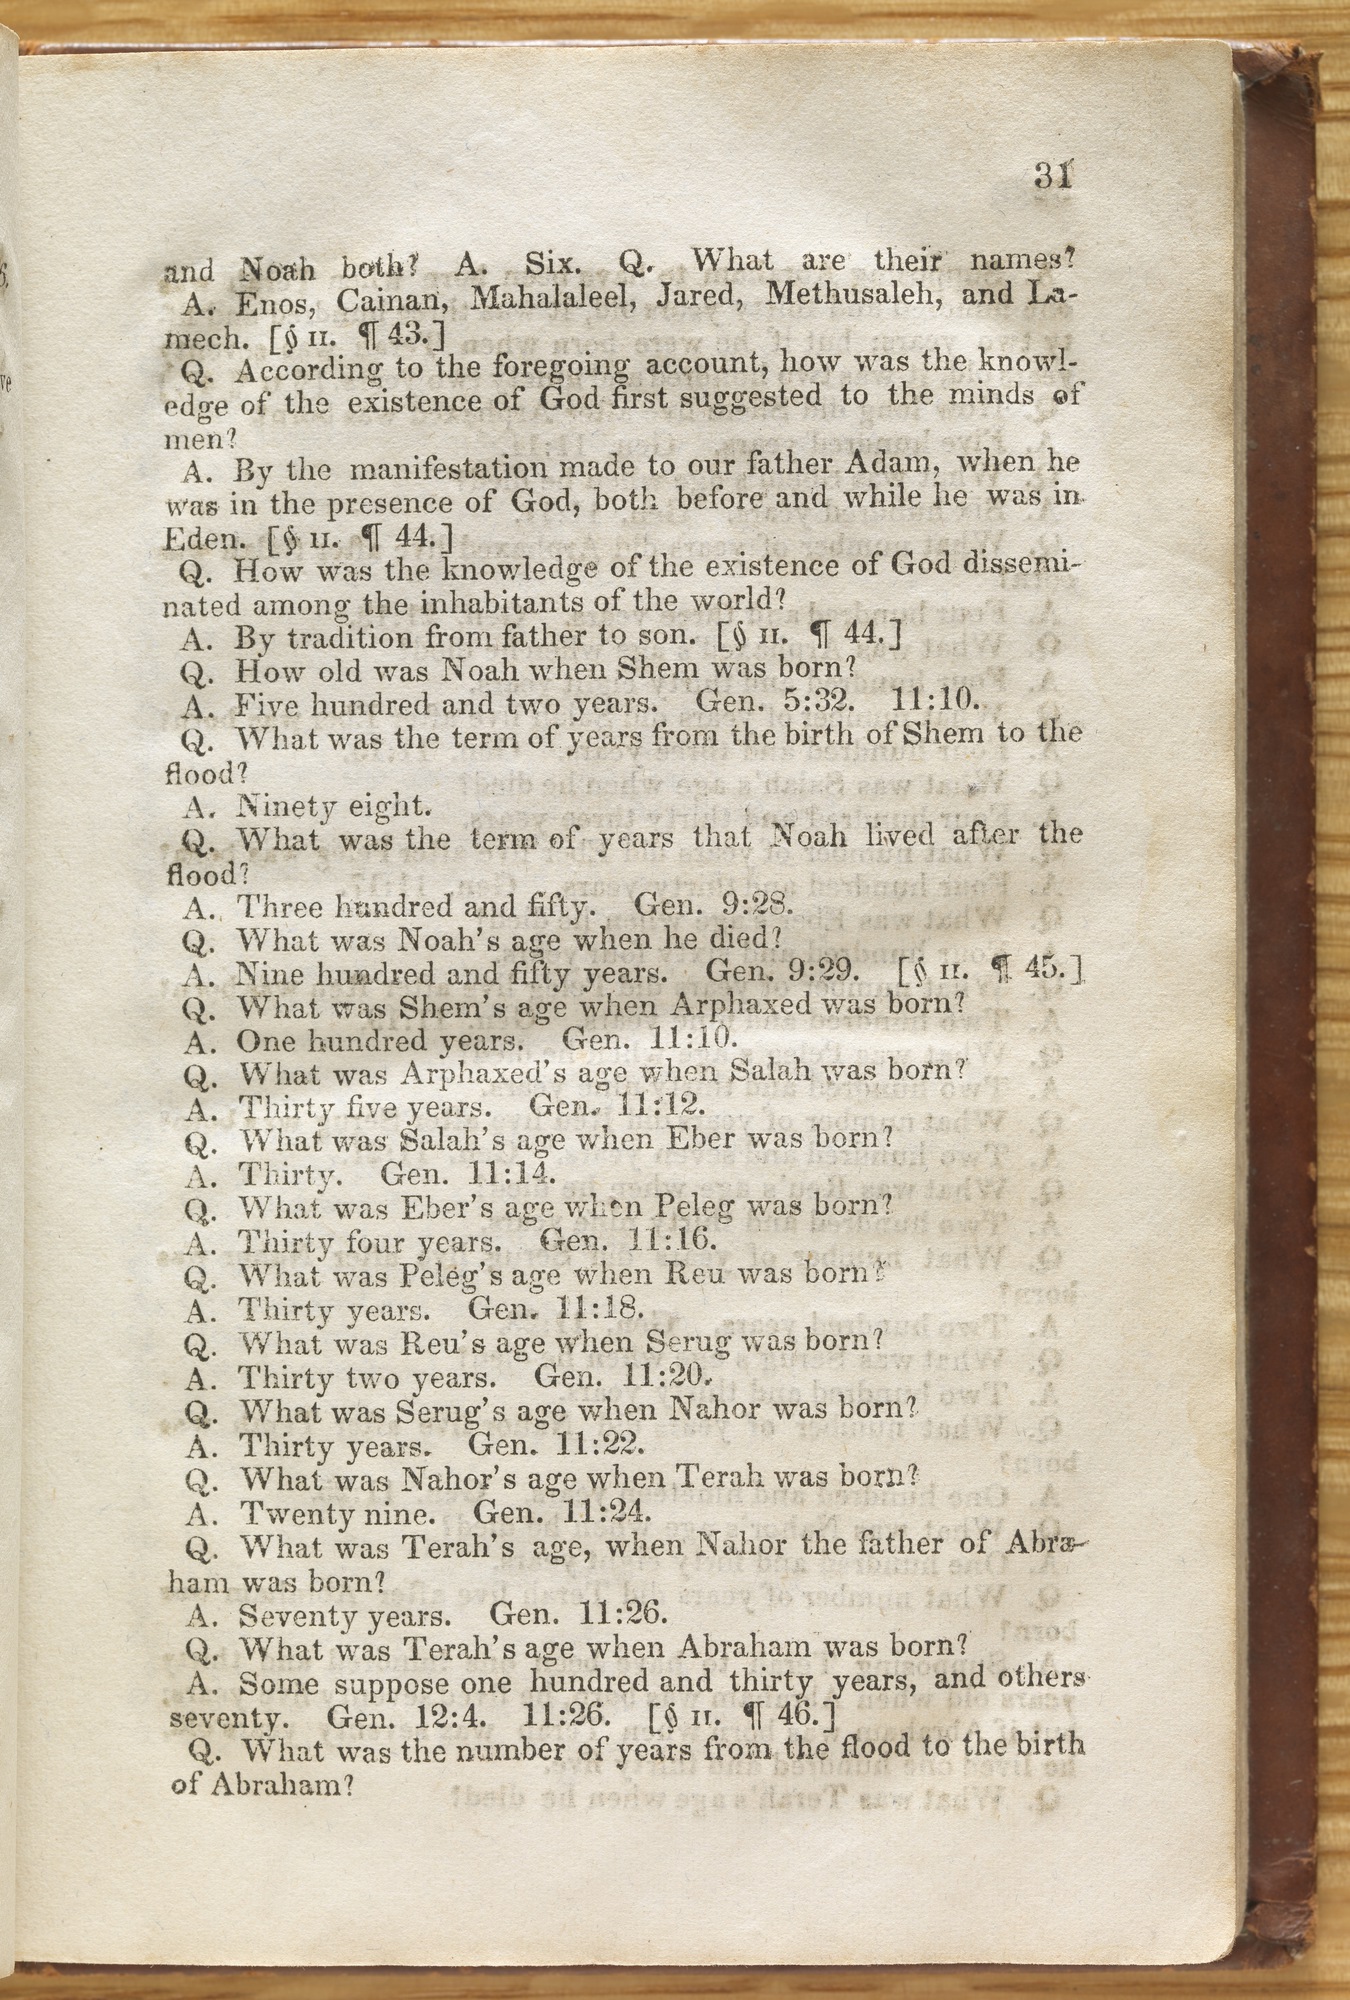 31
and Noah both? A. Six. Q. What are their names?
A. Enos, Cainan, Mahalaleel, Jared, Methusaleh, and La-
mech. [§ II. ¶ 43.]
Q. According to the foregoing account, how was the knowl-
edge of the existence of God first suggested to the minds of
men?
A. By the manifestation made to our father Adam, when he
was in the presence of God, both before and while he was in
Eden. [§ II. ¶ 44.]
Q. How was the knowledge of the existence of God dissemi-
nated among the inhabitants of the world?
A. By tradition from father to son. [§ II. ¶ 44.]
Q. How old was Noah when Shem was born?
A. Five hundred and two years. Gen. 5:32. 11:10.
Q. What was the term of years from the birth of Shem to the
flood?
A. Ninety eight.
Q. What was the term of years that Noah lived after the
flood?
A. Three hundred and fifty. Gen. 9:28.
Q. What was Noah's age when he died?
A. Nine hundred and fifty years. Gen. 9:29. [§ II. ¶ 45.]
Q. What was Shem's age when Arphaxed was born?
A. One hundred years. Gen. 11:10.
Q. What was Arphaxed's age when Salah was born?
A. Thirty five years. Gen. 11:12.
Q. What was Salah's age when Eber was born?
A. Thirty. Gen. 11:14.
Q. What was Eber's age when Peleg was born?
A. Thirty four years. Gen. 11:16.
Q. What was Peleg's age when Reu was born?
A. Thirty years. Gen. 11:18.
Q. What was Reu's age when Serug was born?
A. Thirty two years. Gen. 11:20.
Q. What was Serug's age when Nahor was born?
A. Thirty years. Gen. 11:22.
Q. What was Nahor's age when Terah was born?
A. Twenty nine. Gen. 11:24.
Q. What was Terah's age, when Nahor the father of Abra-
ham was born?
A. Seventy years. Gen. 11:26.
Q. What was Terah's age when Abraham was born?
A. Some suppose one hundred and thirty years, and others
seventy. Gen. 12:4. 11:26. [§ II. ¶ 46.]
Q. What was the number of years from the flood to the birth
of Abraham?